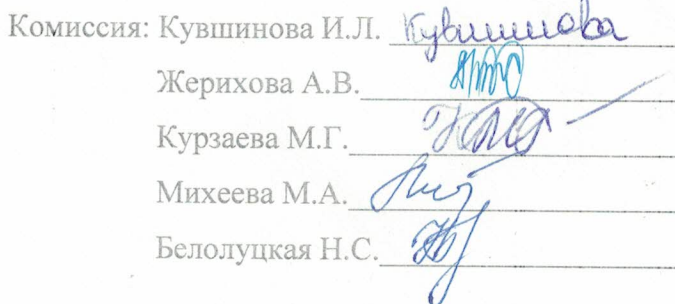 Комиссия: Кувшинова И.Л. Кувшинова
Жерихова А.В.
Курзаева М.Г.
Михеева М.А.
Белолуцкая Н.С.